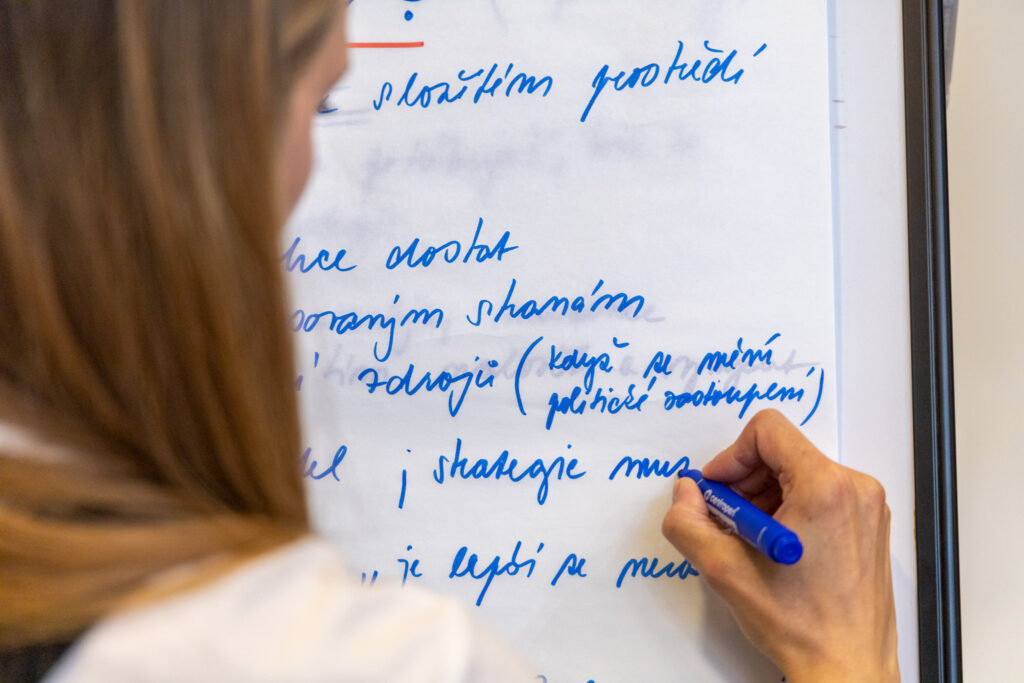 složitém prostředí
dostat
stranám
zdrojů (když se mění
politické zastoupení)
j strategie mus
je lepší se
centropen